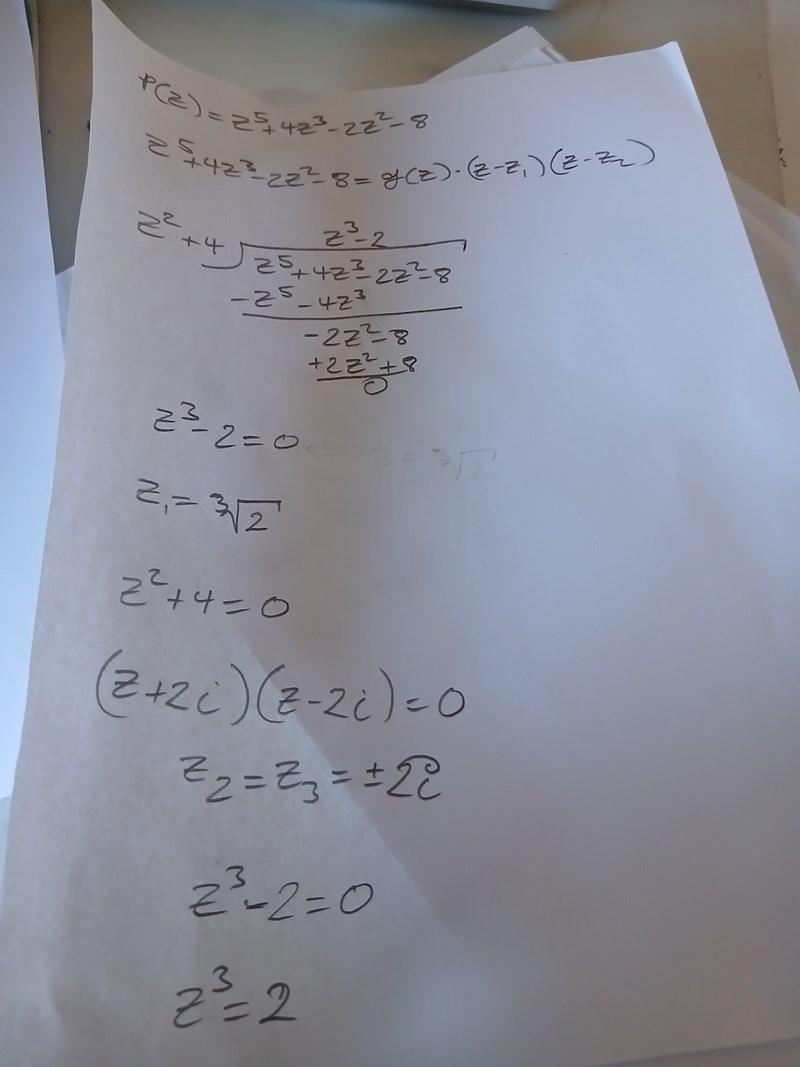 P(z) = z⁵+4z³-2z²-8
z⁵+4z³-2z²-8 = g(z)·(z-z₁)(z-z₂)
z³-2
z²+4 z⁵+4z³-2z²-8
-z⁵-4z³
-2z²-8
+2z²+8
0
z³-2=0
z₁= ³√2
z²+4=0
(z+2i)(z-2i)=0
z₂=z₃=±2i
z³-2=0
z³=2